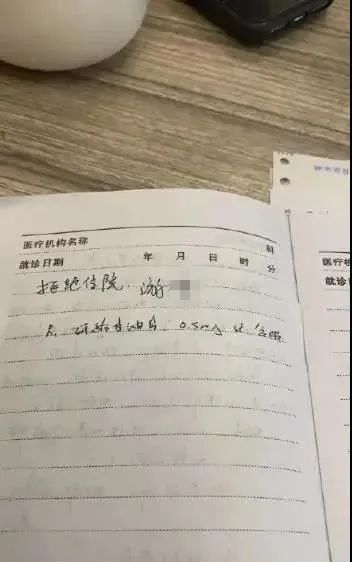 医疗机构名称 科
就诊日期 年 月 日 时 分
拒绝住院. 游
硝酸甘油片. 0.5mg st 含服
医疗机
就诊